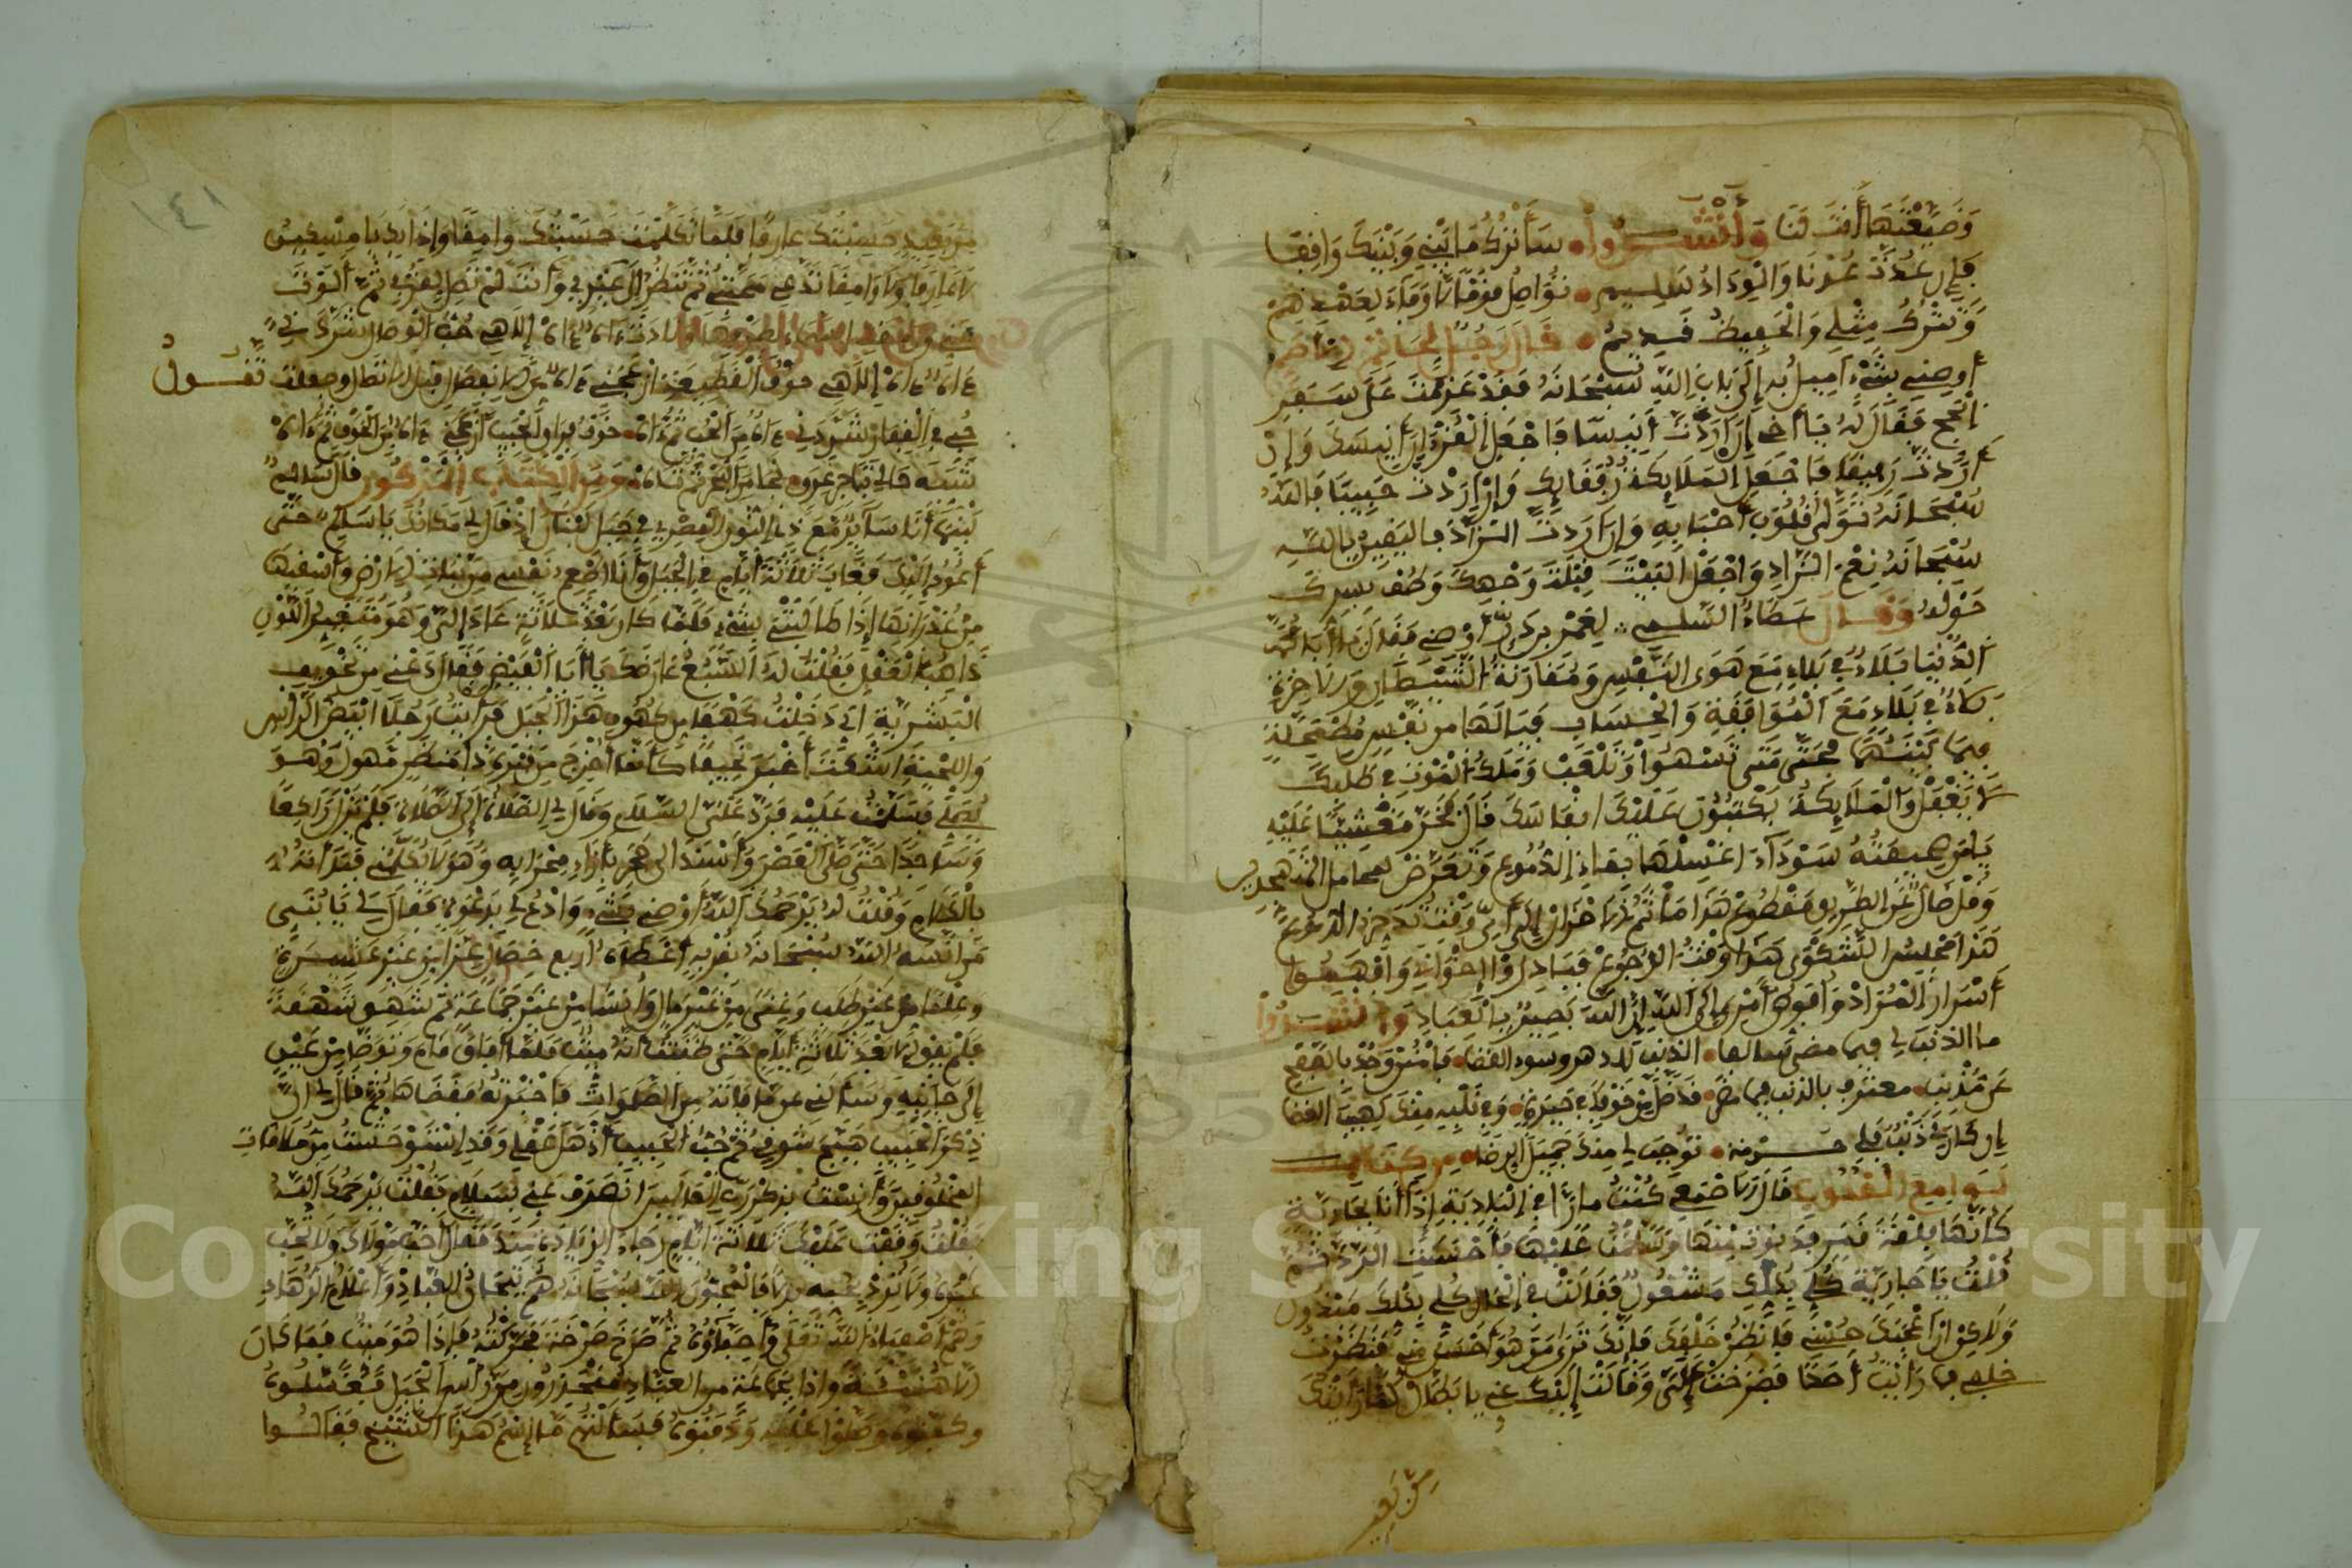 وَضَيَّعْتَهَا أَنْتَ فَتَا وَأَنْشَدُوا سَأَتْرُكُ مَا بَيْنِي وَبَيْنَكَ وَاقِفًا
فَإِنْ عُدْتَ عُدْنَا وَالْوِدَادُ سَلِيمُ نُوَاصِلُ
وَنَتْرُكُ مِثْلِي وَالْحَفِيظُ قَدِيمُ قَالَ رَجُلٌ لِحَاتِمٍ الْأَصَمِّ
أَوْصِنِي بِشَيْءٍ إِلَى بَابِ اللَّهِ سُبْحَانَهُ فَقَدْ عَزَمْتُ عَلَى سَفَرِ
الْحَجِّ فَقَالَ لَهُ يَا أَخِي إِنْ أَرَدْتَ أَنِيسًا فَاجْعَلِ الْقُرْآنَ أَنِيسَكَ وَإِنْ
أَرَدْتَ رَفِيقًا فَاجْعَلِ الْمَلَائِكَةَ رُفَقَاءَكَ وَإِنْ أَرَدْتَ حَبِيبًا فَاللَّهُ
سُبْحَانَهُ تَوَلَّى قُلُوبَ أَحْبَابِهِ وَإِنْ أَرَدْتَ الزَّادَ فَالْيَقِينُ بِاللَّهِ
سُبْحَانَهُ نِعْمَ الزَّادِ وَاجْعَلِ الْبَيْتَ قِبْلَةَ وَجْهِكَ وَطُفْ بِسِرِّكَ
حَوْلَهُ وَقَالَ عَطَاءٌ السُّلَمِي لِعُمَرَ أَوْصِنِي فَقَالَ
الدُّنْيَا بَلَاءٌ فِي بَلَاءٍ مَعَ هَوَى النَّفْسِ وَمُقَارَنَةُ الشَّيْطَانِ وَالْآخِرَةُ
بَلَاءٌ فِي بَلَاءٍ مَعَ الْمُوَاقَفَةِ وَالْحِسَابِ فَيَا لَهَا مِنْ نَفْسٍ مُضْمَحِلَّةٍ
فِيمَا بَيْنَهُمَا فَحَتَّى مَتَى تَسْهُوا وَتَلْعَبُ وَمَلَكُ الْمَوْتِ فِي طَلَبِكَ
لَا يَغْفُلُ وَالْمَلَائِكَةُ يَكْتُبُونَ عَلَيْكَ أَنْفَاسَكَ قَالَ فَخَرَّ مَغْشِيًّا عَلَيْهِ
يَا مَنْ صَحِيفَتُهُ سَوْدَاءَ اغْسِلْهَا بِمَاءِ الدُّمُوعِ وَتَعَرَّضْ لِمَجَامِلِ الْمُتَهَجِّدِينَ
وَقُلْ ضَالٌّ عَنِ الطَّرِيقِ مَقْطُوعٌ هَذَا
هَذَا مَجْلِسُ الشَّكْوَى هَذَا وَقْتُ الرُّجُوعِ فَبَادِرُوا إِخْوَانِي وَافْهَمُوا
أَسْرَارَ الْمُرَادْ وَأُفَوِّضُ أَمْرِي إِلَى اللَّهِ إِنَّ اللَّهَ بَصِيرٌ بِالْعِبَادِ وَأَنْشَدُوا
مَا الذَّنْبُ لِي فِيمَا مَضَى الذَّنْبُ لِلدَّهْرِ وَسُوءِ الْقَضَا فَامْنُنْ وَجُدْ بِالصَّفْحِ
عَنْ مُذْنِبٍ مُعْتَرِفٍ بِالذَّنْبِ فِيمَا مَضَى قَدْ ضَلَّ مِنْ خَوْفِكَ فِي حَيْرَةٍ وَفِي قَلْبِهِ مِنْكَ لَهِيبُ الْغَضَا
إِنْ كَانَ لِي ذَنْبٌ فَلِي حُرْمَةٌ تُوجِبُ لِي مِنْكَ جَمِيلَ الرِّضَا مِنْ كِتَابِ
لَوَامِعِ الْقُلُوبِ قَالَ الْأَصْمَعِي كُنْتُ مَارًّا فِي الْبَادِيَةِ إِذَا أَنَا بِجَارِيَةٍ
كَأَنَّهَا فِلْقَةُ قَمَرٍ فَدَنَوْتُ مِنْهَا وَسَلَّمْتُ عَلَيْهَا فَأَحْسَنَتِ الرَّدَّ ثُمَّ
قُلْتُ يَا جَارِيَةُ كُلِّي بِكُلِّكِ مَشْغُولٌ فَقَالَتْ فِي الْحَالِ كُلِّي بِكُلِّكَ مَبْذُولٌ
وَلَكِنْ إِنْ أَعْجَبَكَ حُسْنِي فَانْظُرْ خَلْفَكَ فَإِنَّكَ تَرَى مَنْ هُوَ أَحْسَنُ مِنِّي فَنَظَرْتُ
خَلْفِي فَمَا رَأَيْتُ أَحَدًا فَصَرَخَتْ عَلَيَّ وَقَالَتْ إِلَيْكَ عَنِّي يَا بَطَّالُ لَمَّا رَأَيْتُكَ
مِنْ بَعِيدٍ
١٤١
مِنْ بَعِيدٍ حَسِبْتُكَ عَارِفًا فَلَمَّا تَكَلَّمْتَ حَسِبْتُكَ وَامِقًا وَإِذَا بِكَ يَا مِسْكِينُ
لَا عَارِفًا وَلَا وَامِقًا تَدَّعِي مَحَبَّتِي ثُمَّ تَنْظُرُ إِلَى غَيْرِي وَأَنْتَ لَمْ تَصِلْ لِقُرْبِي ثُمَّ الْوَتْ
إِلَاهِي حُبُّ الْوَصْلِ شَرَّدَنِي
إِلَاهِي خَوْفُ الْقَطِيعَةِ أَزْعَجَنِي وَجَعَلَتْ تَقُولُ
حُبِّي فِي الْقِفَارِ شَرَّدَنِي آهْ مِنَ الْحُبِّ ثُمَّ آهْ خَوْفُ فِرَاقِ الْحَبِيبِ أَزْعَجَنِي آهْ مِنَ الْخَوْفِ ثُمَّ آهْ
شَبَهُ حَالِي بِتَاجِرٍ غَرِقٍ نَجَا مِنَ الْبَحْرِ ثُمَّ تَاهْ وَمِنَ الْكِتَابِ الْمَذْكُورِ قَالَ سَالِمٌ
بَيْنَمَا أَنَا سَائِرٌ مَعَ ذِي النُّونِ الْمِصْرِي فِي جَبَلِ لُبْنَانَ إِذْ قَالَ لِي مَكَانَكَ يَا سَالِمُ حَتَّى
أَعُودَ إِلَيْكَ فَغَابَ ثَلَاثَةَ أَيَّامٍ فِي الْجَبَلِ وَأَنَا أُطْعِمُ نَفْسِي مِنْ نَبَاتِ الْأَرْضِ وَأَسْقِيهَا
مِنْ غُدْرَانِهَا إِذَا طَالَبَتْنِي بِشَيْءٍ فَلَمَّا كَانَ بَعْدَ ثَلَاثَةٍ عَادَ إِلَيَّ وَهُوَ مُتَغَيِّرُ اللَّوْنِ
ذَاهِبُ الْعَقْلِ فَقُلْتُ لَهُ السَّبُعُ عَارَضَكَ يَا أَبَا الْفَيْضِ فَقَالَ دَعْنِي مِنْ تَخْوِيفِ
الْبَشَرِيَّةِ إِنِّي دَخَلْتُ كَهْفًا مِنْ كُهُوفِ هَذَا الْجَبَلِ فَرَأَيْتُ رَجُلًا أَبْيَضَ الرَّأْسِ
وَاللِّحْيَةِ أَشْعَثَ أَغْبَرَ نَحِيفًا كَأَنَّمَا أُخْرِجَ مِنْ قَبْرِهِ ذَا مَنْظَرٍ مَهُولٍ وَهُوَ
يُصَلِّي فَسَلَّمْتُ عَلَيْهِ فَرَدَّ عَلَيَّ السَّلَامَ وَقَالَ لِي الصَّلَاةَ إِلَى الصَّلَاةِ فَلَمْ يَزَلْ رَاكِعًا
وَسَاجِدًا حَتَّى صَلَّى الْعَصْرَ وَأَسْنَدَ إِلَى حَجَرٍ بِإِزَاءِ مِحْرَابِهِ وَهُوَ لَا يُكَلِّمُنِي فَبَدَأْتُهُ
بِالْكَلَامِ وَقُلْتُ لَهُ يَرْحَمُكَ اللَّهُ أَوْصِنِي بِشَيْءٍ وَادْعُ لِي بِدَعْوَةٍ فَقَالَ لِي يَا بُنَيَّ
مَنْ آنَسَهُ اللَّهُ سُبْحَانَهُ بِقُرْبِهِ أَعْطَاهُ أَرْبَعَ خِصَالٍ عِزًّا مِنْ غَيْرِ عَشِيرَةٍ
وَعِلْمًا مِنْ غَيْرِ طَلَبٍ وَغِنًى مِنْ غَيْرِ مَالٍ وَأُنْسًا مِنْ غَيْرِ جَمَاعَةٍ ثُمَّ شَهِقَ شَهْقَةً
فَلَمْ يَفِقْ إِلَّا بَعْدَ ثَلَاثَةِ أَيَّامٍ حَتَّى ظَنَنْتُ أَنَّهُ مَيِّتٌ فَلَمَّا أَفَاقَ قَامَ وَتَوَضَّأَ مِنْ عَيْنٍ
إِلَى جَانِبِهِ وَسَأَلَنِي عَمَّا فَاتَهُ مِنَ الصَّلَوَاتِ فَأَخْبَرْتُهُ فَقَضَاهَا ثُمَّ قَالَ لِي إِنَّ
ذِكْرَ الْحَبِيبِ هَيَّجَ شَوْقِي ثُمَّ حُبُّ الْحَبِيبِ أَذْهَلَ عَقْلِي وَقَدِ اسْتَوْحَشْتُ مِنْ مُلَاقَاتِ
الْمَخْلُوقِينَ وَأَنِسْتُ بِذِكْرِ رَبِّ الْعَالَمِينَ انْصَرِفْ عَنِّي بِسَلَامٍ فَقُلْتُ يَرْحَمُكَ اللَّهُ
وَقَفْتُ عَلَيْكَ ثَلَاثَةَ أَيَّامٍ رَجَاءَ الزِّيَادَةِ مِنْكَ فَقَالَ أَحِبَّ مَوْلَاكَ وَلَا تُحِبَّ
غَيْرَهُ وَلَا تُرِدْ بِحُبِّهِ بَدَلًا فَالْمُحِبُّونَ لِلَّهِ سُبْحَانَهُ هُمْ تِيجَانُ الْعِبَادِ وَأَعْلَامُ الزُّهَّادِ
وَهُمْ أَصْفِيَاءُ اللَّهِ تَعَالَى وَأَحِبَّاؤُهُ ثُمَّ صَرَخَ صَرْخَةً فَحَرَّكْتُهُ فَإِذَا هُوَ مَيِّتٌ فَمَا كَانَ
إِلَّا هُنَيْهَةً وَإِذَا بِجَمَاعَةٍ مِنَ الْعُبَّادِ مُنْحَدِرُونَ مِنْ رَأْسِ الْجَبَلِ فَغَسَّلُوهُ
وَكَفَّنُوهُ وَصَلَّوْا عَلَيْهِ وَدَفَنُوهُ فَسَأَلْتُهُمْ مَا اسْمُ هَذَا الشَّيْخِ فَقَالُوا